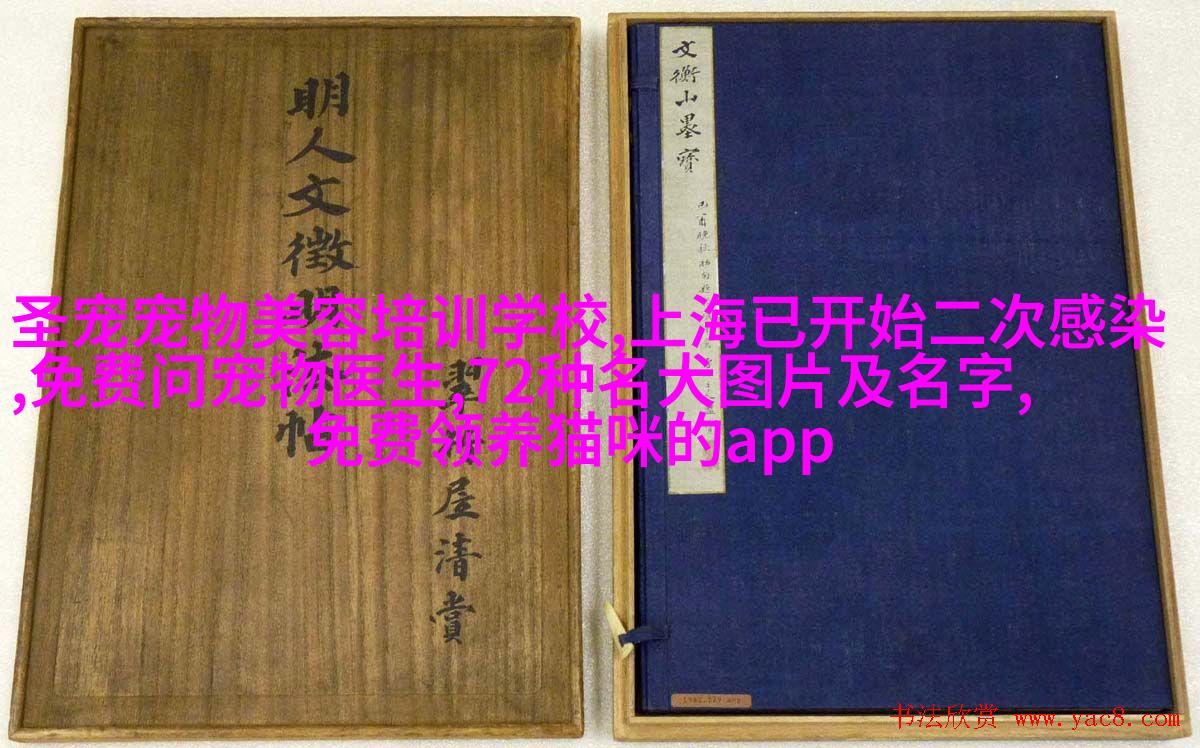 明人文徵明
帖
屋清賞
文衡山墨寶
圣宠宠物美容培训学校,上海已开始二次感染
,免费问宠物医生,72种名犬图片及名字,
免费领养猫咪的app
书法欣赏 www.yac8.com